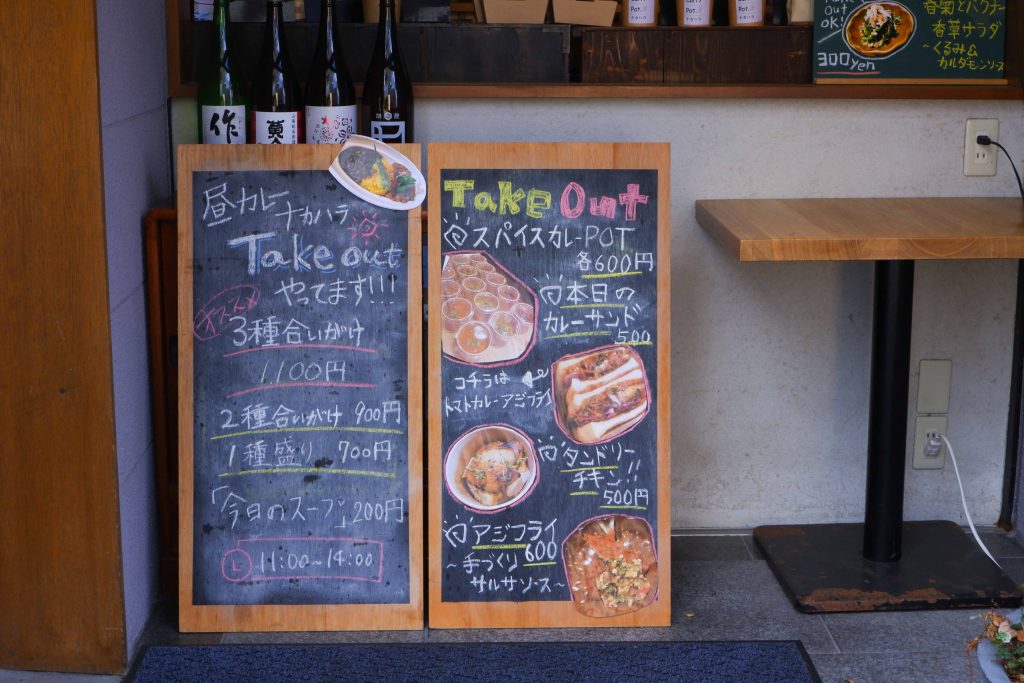 作
Pot.
Pot.
ナカハラ
out
ok!
300yen
春菊とパクチー
香草サラダ
~くるみ&
カルダモンソース
昼カレー
ナカハラ
Take out
やってます!!!
オススメ
3種合いがけ
1,100円
2種合いがけ 900円
1種盛り 700円
「今日のスープ」200円
L 11:00~14:00
Take Out
スパイスカレーPOT
各600円
本日の
カレーサンド
500
コチラは
トマトカレーアジフライ
タンドリー
チキン!!
500円
アジフライ
600
~手づくり
サルサソース~